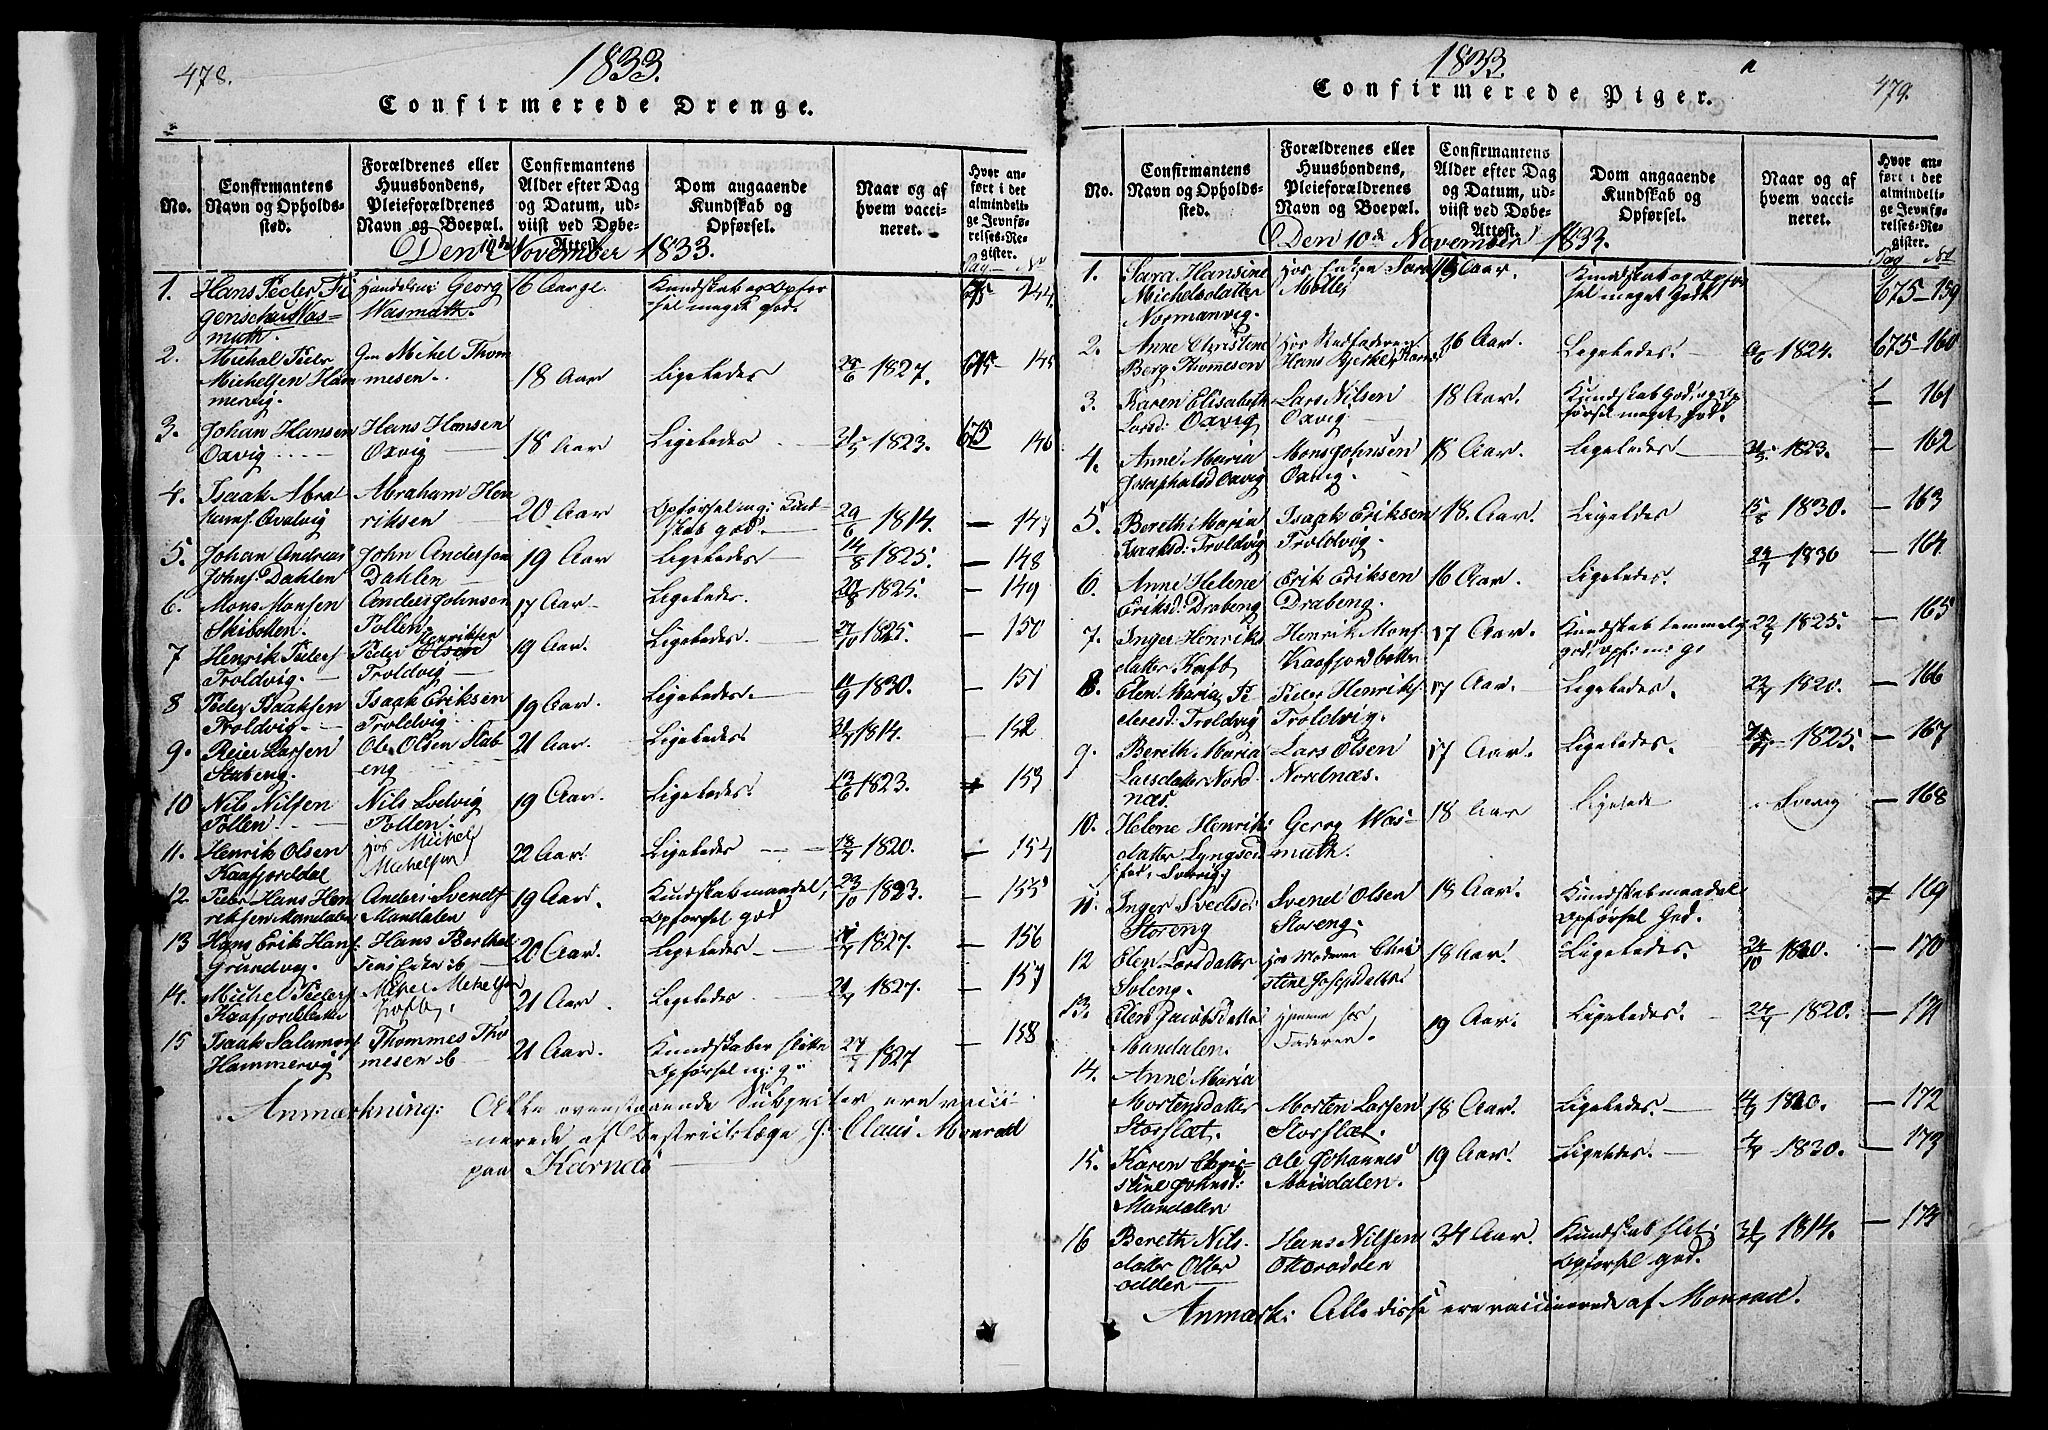 478.
1833.
Confirmerede Drenge.
No.
Confirmantens Navn og Opholdssted.
Forældrenes eller Huusbondens, Pleieforældrenes Navn og Boepæl.
Confirmantens Alder efter Dag og Datum, udviist ved Døbe-Attest.
Dom angaaende Kundskab og Opførsel.
Naar og af hvem vaccineret.
Hvor anført i det almindelige Jevnførelses-Register.
Den 10de November 1833.
1. Hans Peder Wasmuth. Georg Wasmuth. 16 Aar Kundskab og Opførsel meget god. 675 144
2. Michal Peder Michelsen Hammervig. Michel Thommesen. 18 Aar Ligeledes 1827. 675 145
3. Johan Hansen Oxvig Hans Hansen Oxvig 18 Aar Ligeledes 1823. 675 146
4. Isaak Abrahams. Abraham Henriksen 20 Aar god. 29/6 1814. — 147
5. Johan Andreas Johns. Dahlen John Anderson Dahlen 19 Aar Ligeledes 14/8 1825. — 148
6. Mons Monsen Skibotten. Anders Johnsen Pollen. 17 Aar Ligeledes. 1825. — 149
7 Henrik Peders. Troldvig. Peder Henriksen Troldvig 19 Aar. Ligeledes. 1825. — 150
8 Peder Isaaksen Troldvig. Isaak Eriksen Troldvig 19 Aar. Ligeledes. 1830. — 151
9. Reier Larsen Stabeng. Ole Olsen Stabeng 21 Aar. Ligeledes 1814. — 152
10 Nils Nilsen Pollen. Nils Lodvig Pollen. 19 Aar. Ligeledes. 13/6 1823. 153
11. Henrik Olsen Kaafjorddal hos Michel Michelsen 22 Aar. Ligeledes 1820. — 154
12 Peder Hans Henriksen Mandalen Anders Svends. Mandalen 19 Aar. Kundskab maadel; Opførsel god 23/10 1823. — 155
13 Hans Erik Hans. Grundvig. Hans Berthel 20 Aar. Ligeledes 1827. — 156
14. Michel Peders. Kaafjordbotten Michel Michelsen 21 Aar. Ligeledes 1827. — 157
15 Isaak Salamons. Hammervig Thommes Thommesen 21 Aar. Kundskaber slette Opførsel 1827 — 158
Anmærkning: Alle ovenstaaende Subjecter ere vaccinerede af Destrictslæge Hr. Claus Monrad
paa Karnæs
1833.
Confirmerede Piger.
479.
No.
Confirmantens Navn og Opholdssted.
Forældrenes eller Huusbondens, Pleieforældrenes Navn og Boepæl.
Confirmantens Alder efter Dag og Datum, udviist ved Døbe-Attest.
Dom angaaende Kundskab og Opførsel.
Naar og af hvem vaccineret.
Hvor anført i det almindelige Jevnførelses-Register.
Den 10de November 1833.
1. Sara Hansine Michelsdatter Normanvig. hos Enken Sara 15 Aar. Kundskab og Opførsel meget Godt 675 — 159
2. Anne Christene Berg Thomesen hos Stedfaderen Hans 16 Aar. Ligeledes. 1824. 675 — 160
3. Karen Elisabeth Larsd: Oxvig Lars Nilsen Oxvig 18 Aar. Kundskab God, og Opførsel meget god. 161
4. Anne Maria Josephatsd Oxvig Mons Johnsen Oxvig. 18 Aar. Ligeledes 1823. — 162
5. Bereth Maria Isaaksd: Troldvig Isaak Eriksen Troldvig 18. Aar. Ligeledes 15/8 1830. — 163
6. Anne Helene Eriksd: Drabeng Erik Eriksen Drabeng. 16 Aar. Ligeledes. 1830 — 164
7. Inger Henriksdatter Henrik Mons. Kaafjordbotten 17 Aar. Kundskab temmelig god, 1825. — 165
8. Elen Maria Pedersd: Troldvig Peder Henriks. Troldvig. 17 Aar. Ligeledes. 1820. — 166
9. Berith Maria Larsdatter Nordnæs. Lars Olsen Nordnæs. 17 Aar. Ligeledes. 1825. — 167
10. Helene Henriksdatter Lyngseid fød i Sverig Georg Wasmuth. 18 Aar Ligelede Sverig — 168
11. Inger Storeng Svend Olsen Storeng. 18 Aar. Kundskab maadel Opførsel God. 169
12 Elen Larsdatter Soleng. hos Moderen Christine Josepsdatter 18 Aar. Ligeledes. 1820. — 170
13. Elen Jacobsdatter Mandalen. hjemme hos Faderen. 19 Aar. Ligeledes. 1820. — 171
14. Anne Maria Mortensdatter Storslæt. Morten Larsen Storslæt. 18 Aar. Ligeledes. 1820. — 172
15. Karen Christine Johnsd: Mandalen Ole Johannes Mandalen. 19 Aar. Ligeledes. 1820. — 173
16 Bereth Nilsdatter Otterodden Hans Nilsen Otterodden 34 Aar. Kundskab slet; Opførsel god. 1814. — 174
Anmærk: Alle disse ere vaccinerede af Monrad.